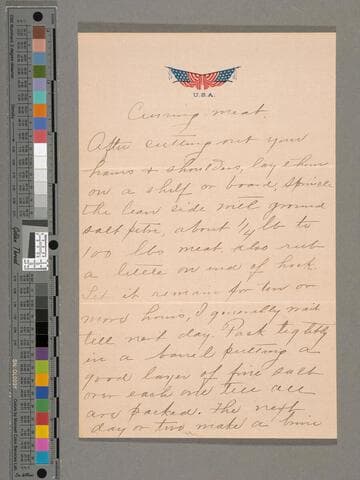 U.S.A.
Curring meat.
After cutting out your
hams & shoulders, lay them
on a shelf or board, sprinkle
the lean side with ground
salt petre, about 1/4 lb to
100 lbs meat also rub
a little on end of hock.
Let it remain for two or
more hours, I generally wait
till next day. Pack tightly
in a barrel putting a
good layer of fine salt
over each one till all
are packed. The next
day or two make a brine